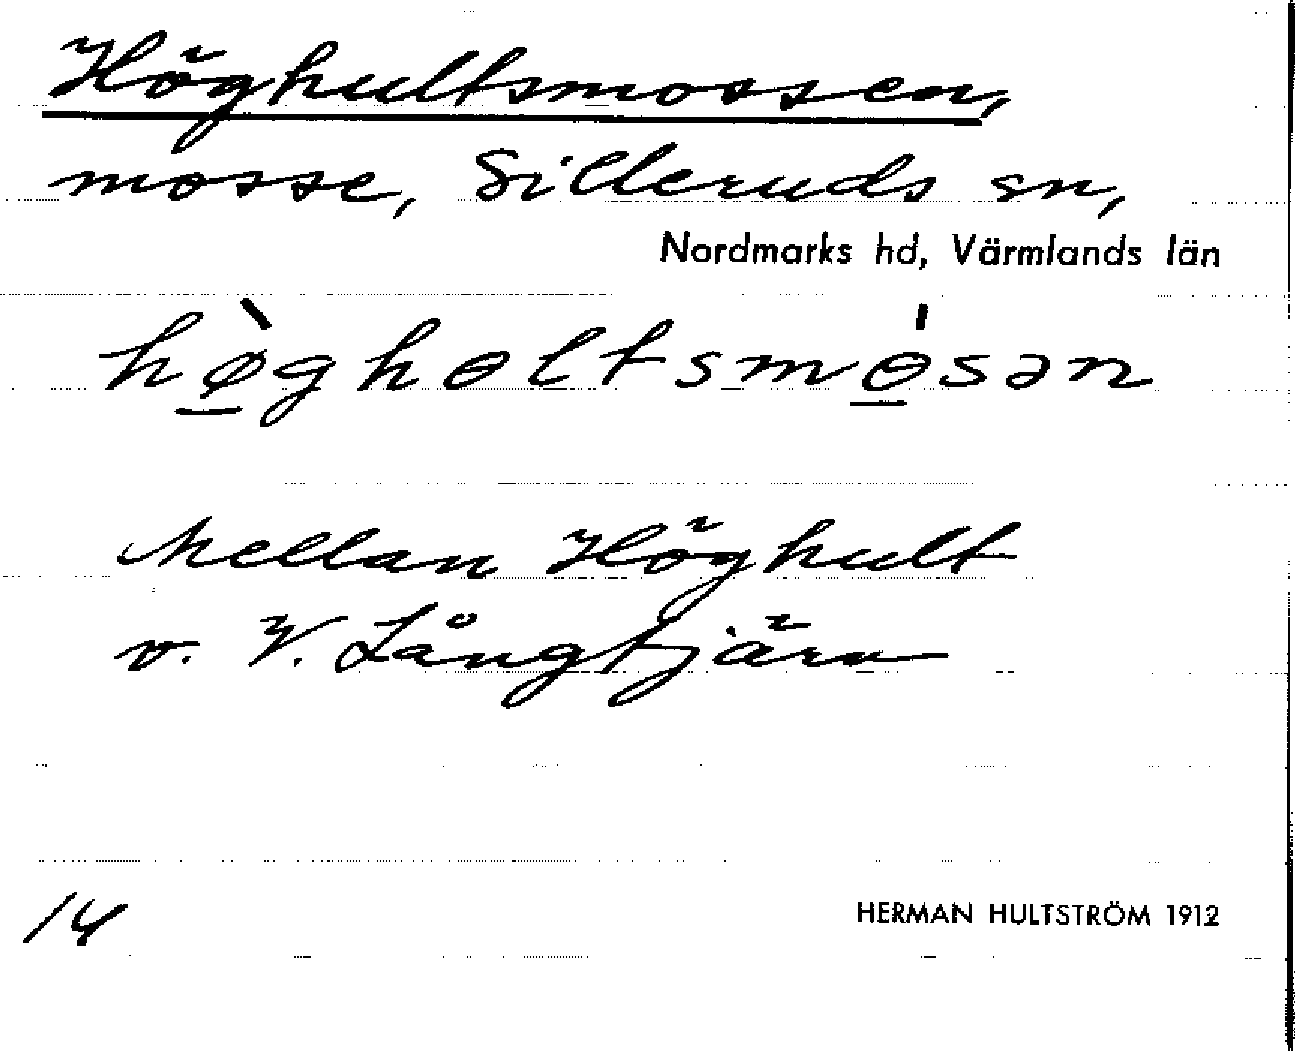 Höghultsmossen,
mosse, Silleruds sn,
Nordmarks hd, Värmlands län
hø̠̀ghɵltsmɵ̠́sən
Mellan Höghult
o. V. Långtjärn
14
HERMAN HULTSTRÖM 1912